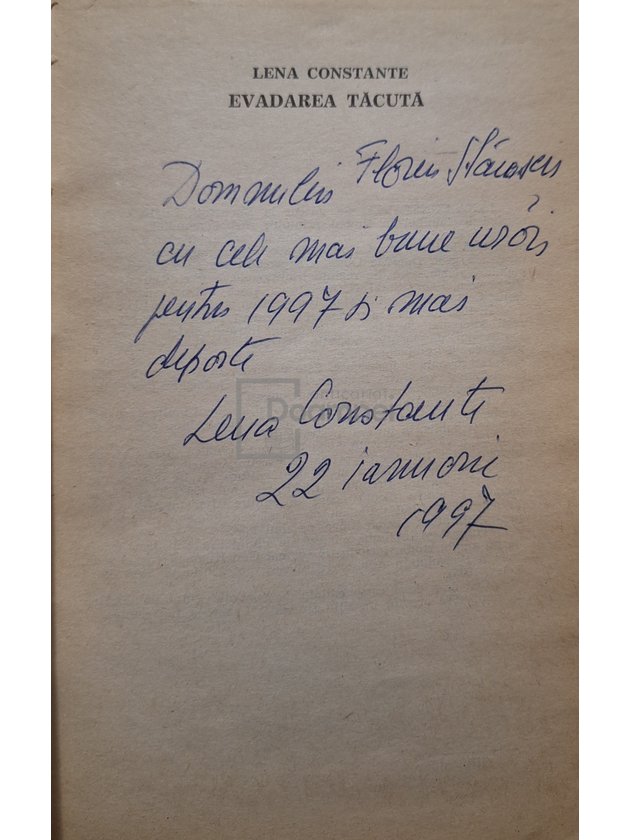 LENA CONSTANTE
EVADAREA TĂCUTĂ
Domnului Florin
cu cele mai bune urări
pentru 1997 și mai
departe
Lena Constante
22 ianuarie
1997